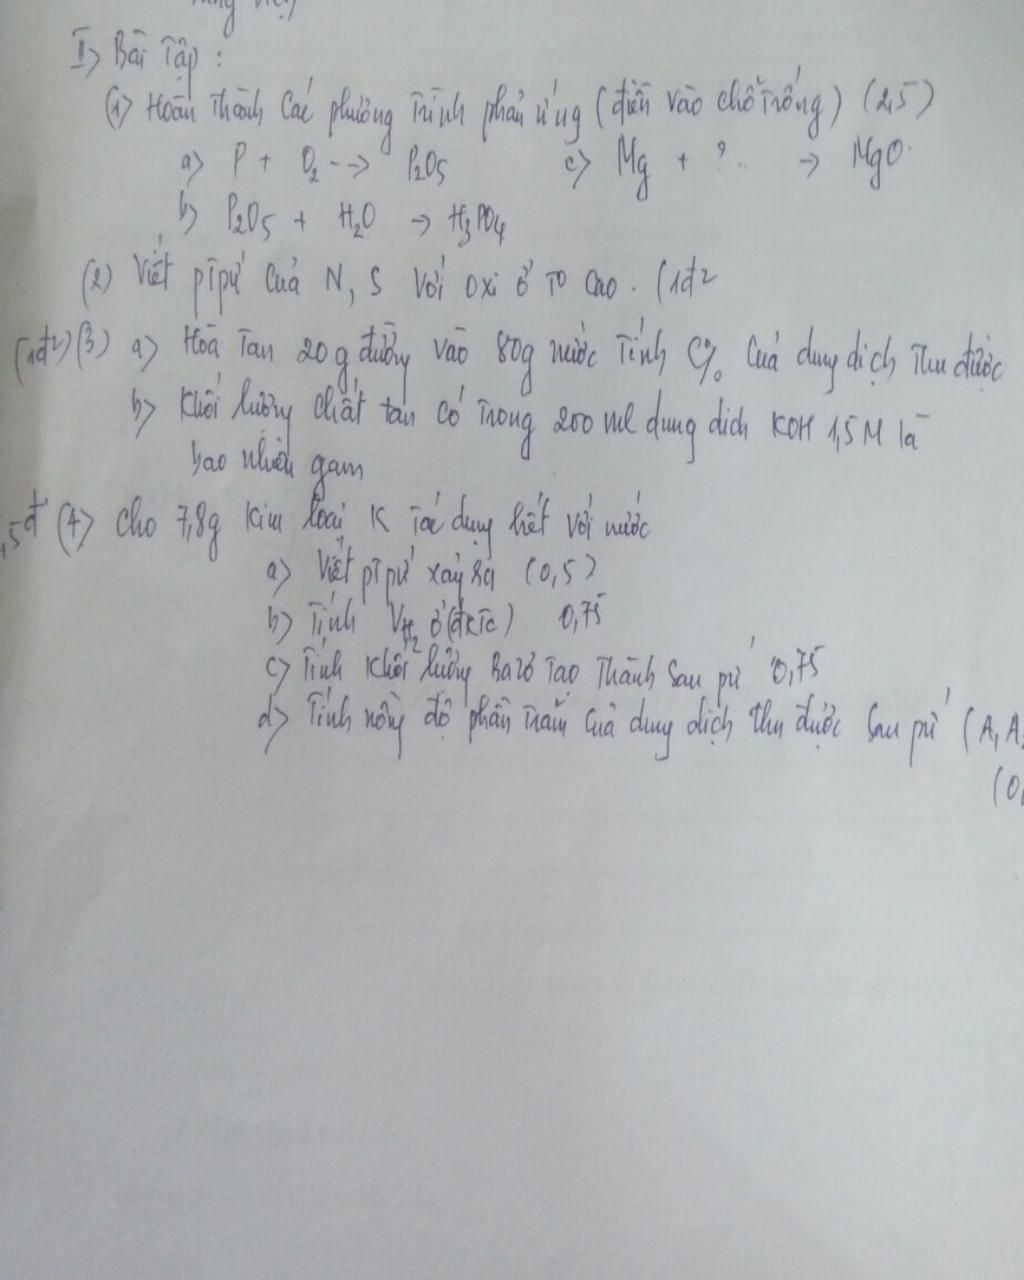 II> Bài Tập :
(1) Hoàn Thành Các phương Trình phản ứng (điền vào chỗ Trống) (2,5)
a) P + O₂ --> P₂O₅ c) Mg + ?.. → MgO.
b) P₂O₅ + H₂O → H₃PO₄
(2) Viết pTpứ Của N, S Với Oxi ở T0 Cao. (1đ2
(1đ2) (3) a) Hoà Tan 20g đường vào 80g nước Tính C% Của dung dịch Thu được
b) Khối lượng Chất tan có Trong 200 ml dung dịch KOH 1,5M là
bao nhiêu gam
,5đ (4) Cho 7,8g Kim loại K Tác dụng hết với nước
a) Viết pTpứ xảy ra (0,5)
b) Tính VH₂ ở (đKTC) 0,75
c) Tính Khối lượng Bazơ Tạo Thành Sau pứ 0,75
d) Tính nồng độ phần Trăm Của dung dịch thu được Sau pứ (A, A
(0,